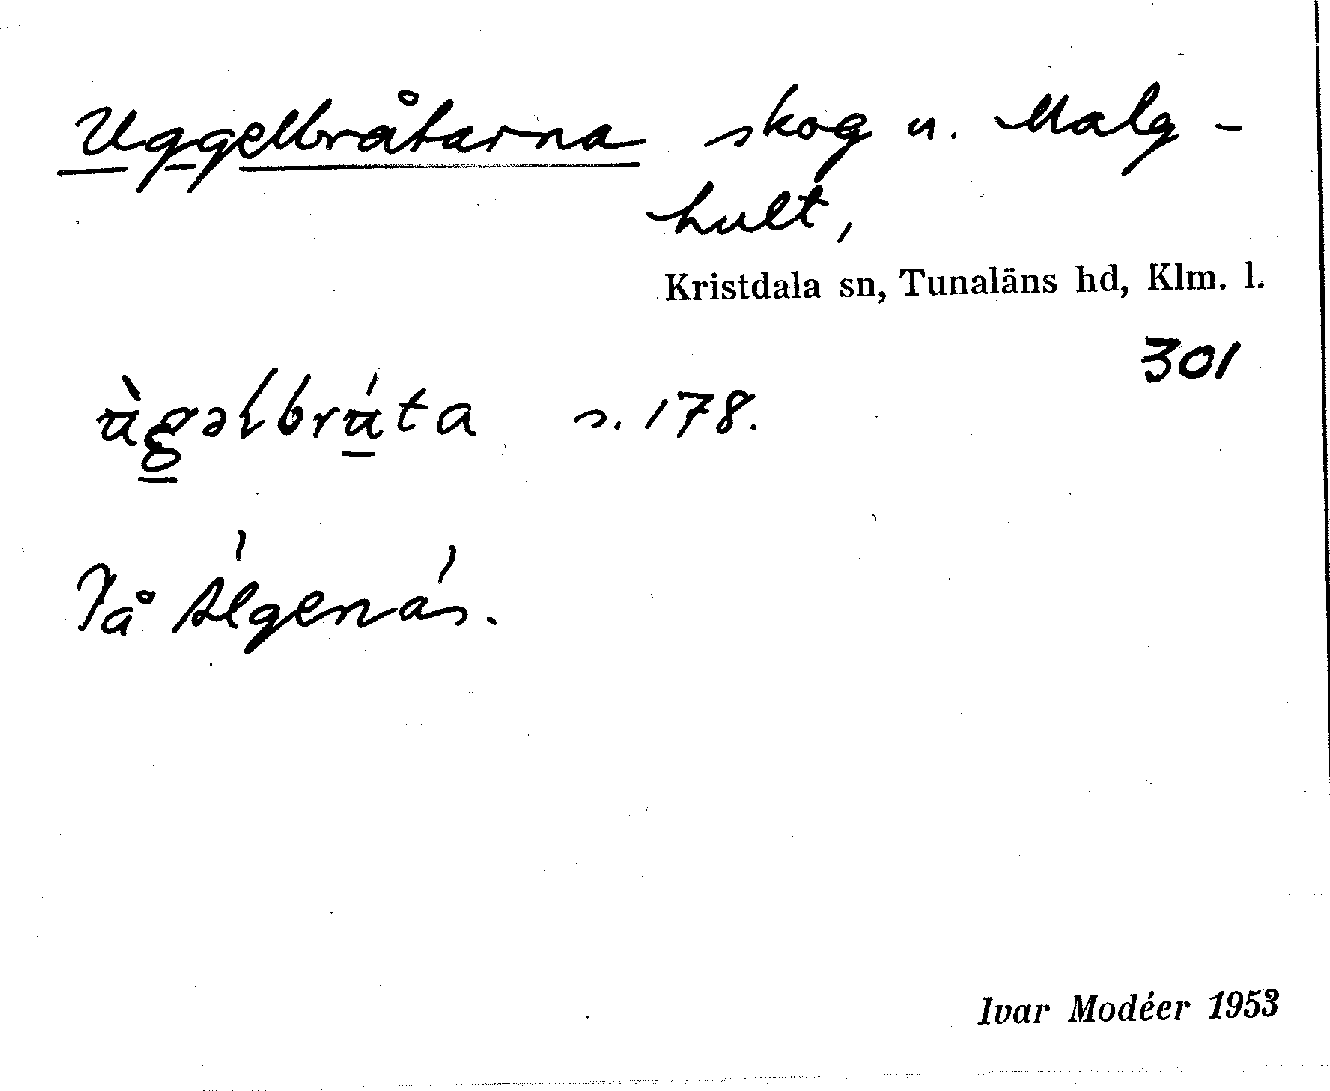 Uggelbråtarna skog u. Malg-
hult,
Kristdala sn, Tunaläns hd, Klm. l.
301
ùg̲əlbrú̲ta s. 178.
På Älgenäs.
Ivar Modéer 1953